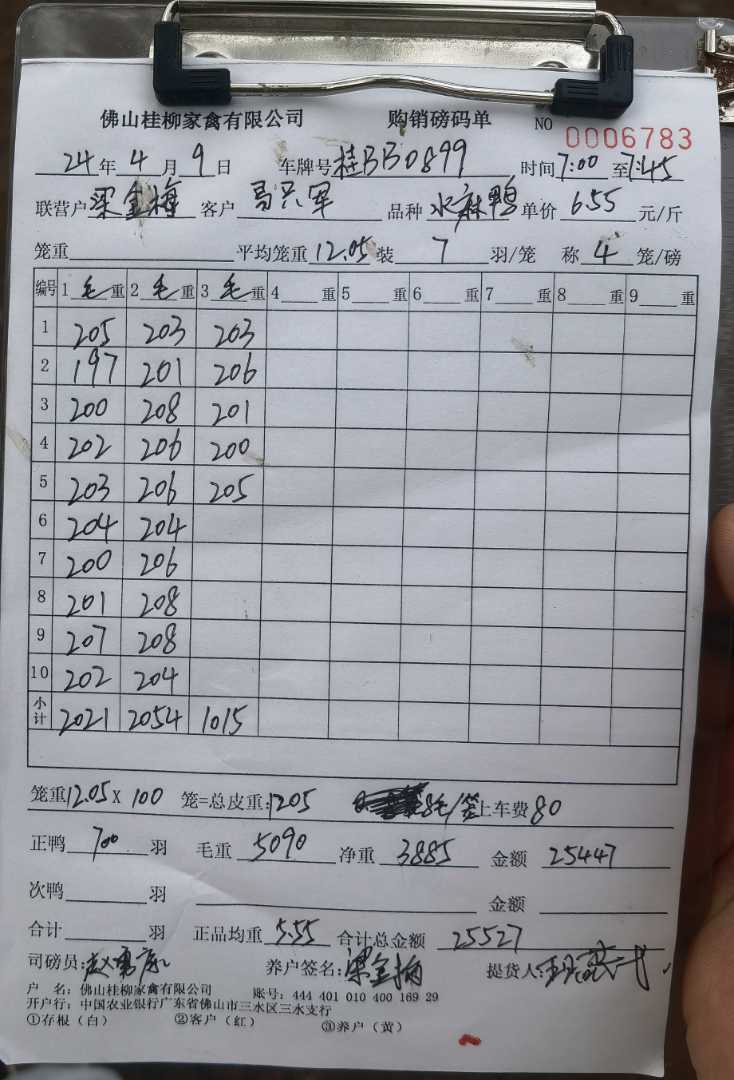 佛山桂柳家禽有限公司 购销磅码单 NO 0006783
24年4月9日 车牌号桂BB0899 时间7:00至7:45
联营户梁金梅 客户 易兴军 品种水麻鸭 单价6.55元/斤
笼重 平均笼重12.05装7羽/笼 称4笼/磅
编号 1毛重 2毛重 3毛重 4重 5重 6重 7重 8重 9重
1 205 203 203
2 197 201 206
3 200 208 201
4 202 206 200
5 203 206 205
6 204 204
7 200 206
8 201 208
9 207 208
10 202 204
小计 2021 2054 1015
笼重12.05x100 笼=总皮重:1205 8毛/笼上车费80
正鸭700羽 毛重5090 净重3885 金额25447
次鸭 羽 金额
合计 羽 正品均重5.55 合计总金额25527
司磅员: 养户签名:梁金梅 提货人:
户 名:佛山桂柳家禽有限公司 账号:444 401 010 400 169 29
开户行:中国农业银行广东省佛山市三水区三水支行
①存根(白) ②客户(红) ③养户(黄)